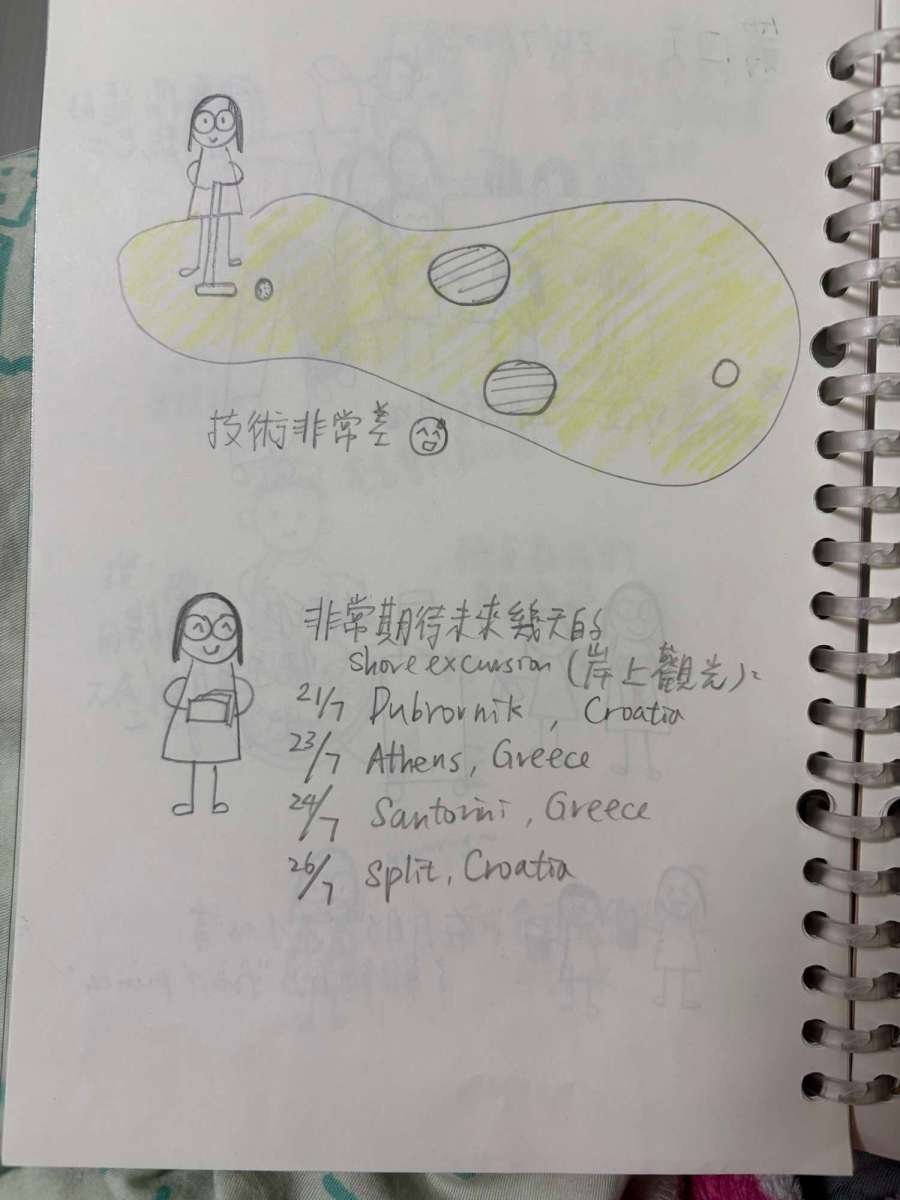 技術非常差
非常期待未來幾天的
shore excursion (岸上觀光):
21/7 Dubrovnik, Croatia
23/7 Athens, Greece
24/7 Santorini, Greece
26/7 Split, Croatia